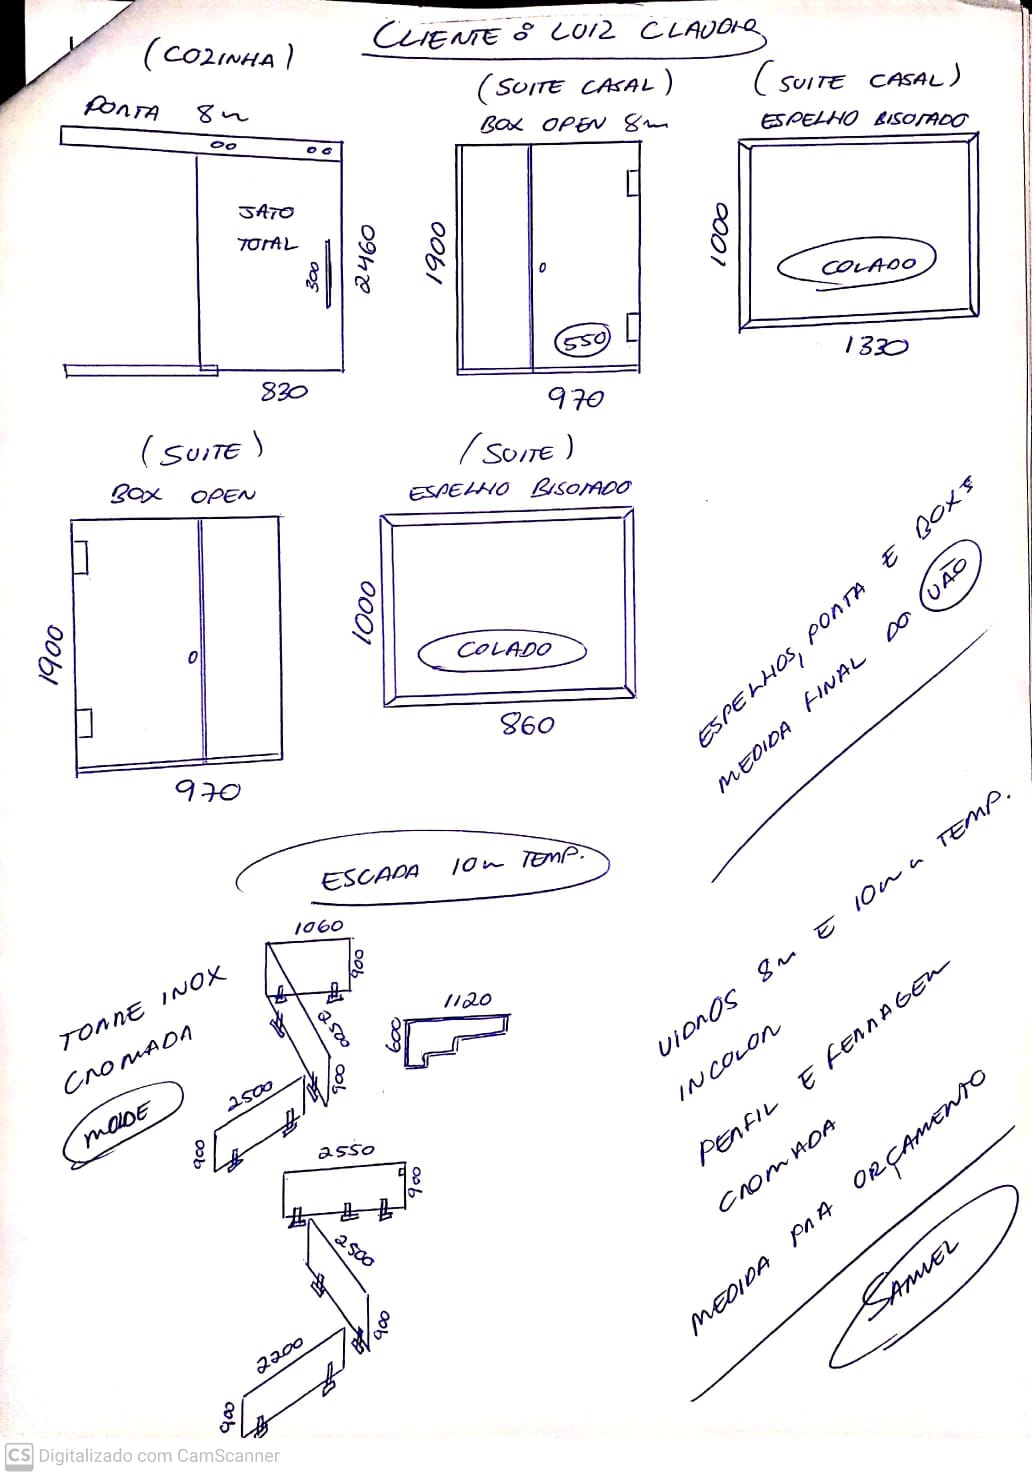 CLIENTE : LUIZ CLAUDIO
(COZINHA)
PORTA 8m
JATO
TOTAL
300
2460
830
(SUITE CASAL)
BOX OPEN 8m
1900
550
970
(SUITE CASAL)
ESPELHO BISOTADO
1000
COLADO
1330
(SUITE)
BOX OPEN
1900
970
(SUITE)
ESPELHO BISOTADO
1000
COLADO
860
ESPELHOS, PORTA E BOXS
MEDIDA FINAL DO VÃO
ESCADA 10m TEMP.
TORRE INOX
CROMADA
MOLDE
1060
900
2500
900
2500
900
1120
600
2550
900
2500
900
2200
900
VIDROS 8m E 10m TEMP.
INCOLOR
PERFIL E FERRAGEM
CROMADA
MEDIDA PRA ORÇAMENTO
SAMUEL
CS Digitalizado com CamScanner